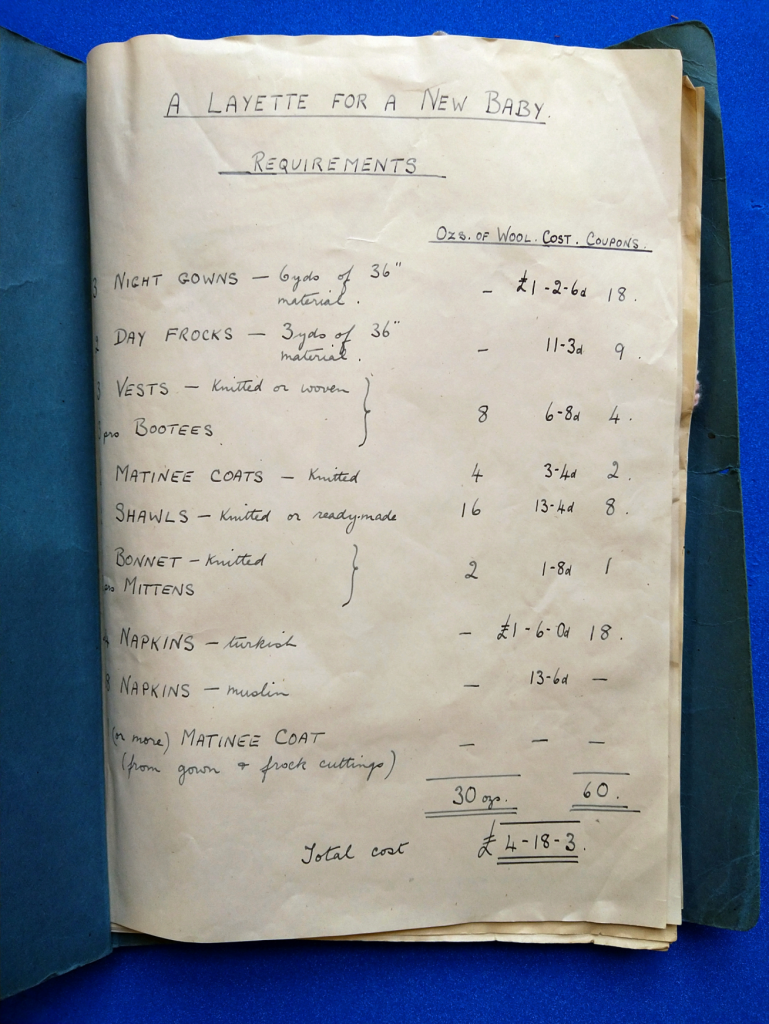 A LAYETTE FOR A NEW BABY.
REQUIREMENTS
OZS. OF WOOL. COST. COUPONS.
3 NIGHT GOWNS — 6yds of 36" — £1-2-6d 18.
material.
DAY FROCKS — 3yds of 36" — 11-3d 9.
material.
3 VESTS — Knitted or woven
8 6-8d 4.
prs BOOTEES
MATINEE COATS — Knitted 4 3-4d 2.
SHAWLS — Knitted or ready-made 16 13-4d 8.
BONNET — Knitted
2 1-8d 1
prs MITTENS
NAPKINS — turkish — £1-6-0d 18.
NAPKINS — muslin — 13-6d —
(or more) MATINEE COAT — — —
(from gown & frock cuttings)
30 ozs. 60.
Total cost £4-18-3.